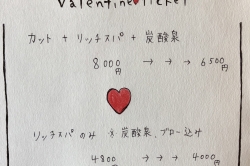 Valentine Ticket
カット + リッチスパ + 炭酸泉
8000円 → → → 6500円
リッチスパのみ ※炭酸泉、ブロー込み
4800円 → → → 4000円